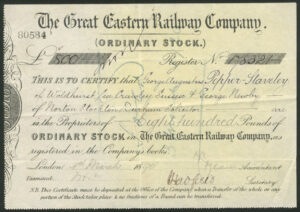 The Great Eastern Railway Company.
30584
(ORDINARY STOCK.)
£ 800 Register No
THIS IS TO CERTIFY that George Augustus Pepper-Staveley
of Waldhurst, Crawley Sussex & George Newby
of Norton Stockton Durham Solicitor
is the Proprietor of Eight hundred Pounds of
ORDINARY STOCK in The Great Eastern Railway Company, as
registered in the Company's books.
London March Accountant
Secretary
N.B. This Certificate must be deposited at the Office of the Company when a Transfer of the whole or any
portion of the Stock takes place & no fractions of a Pound can be transferred.